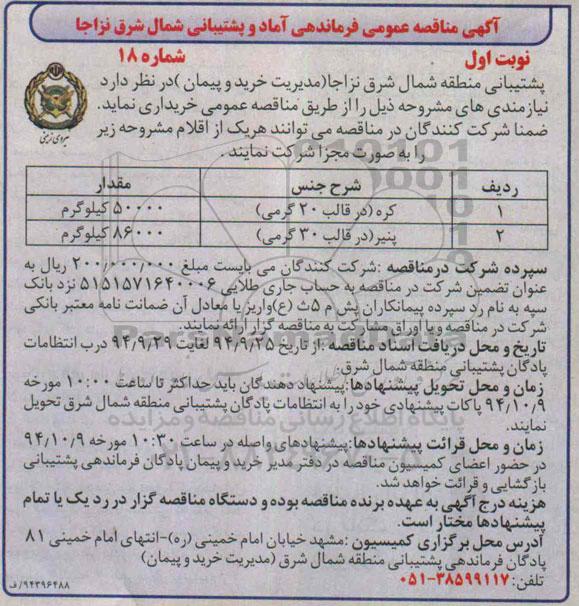 آگهی مناقصه عمومی فرماندهی آماد و پشتیبانی شمال شرق نزاجا
نوبت اول
شماره ۱۸
نیروی زمینی
پشتیبانی منطقه شمال شرق نزاجا(مدیریت خرید و پیمان )در نظر دارد
نیازمندی های مشروحه ذیل را از طریق مناقصه عمومی خریداری نماید.
ضمنا شرکت کنندگان در مناقصه می توانند هریک از اقلام مشروحه زیر
را به صورت مجزا شرکت نمایند .
ردیف شرح جنس مقدار
۱ کره (در قالب ۲۰ گرمی) ۵۰۰۰۰ کیلوگرم
۲ پنیر(در قالب ۳۰ گرمی) ۸۶۰۰۰ کیلوگرم
سپرده شرکت درمناقصه :شرکت کنندگان می بایست مبلغ ۲۰۰/۰۰۰/۰۰۰ ریال به
عنوان تضمین شرکت در مناقصه به حساب جاری طلایی ۵۱۵۱۵۷۱۶۴۰۰۰۶ نزد بانک
سپه به نام رد سپرده پیمانکاران پش م ۵ث (ع)واریز یا معادل آن ضمانت نامه معتبر بانکی
شرکت در مناقصه و یا اوراق مشارکت به مناقصه گزار ارائه نمایند.
تاریخ و محل دریافت اسناد مناقصه :از تاریخ ۹۴/۹/۲۵ لغایت ۹۴/۹/۲۹ درب انتظامات
پادگان پشتیبانی منطقه شمال شرق.
زمان و محل تحویل پیشنهادها:پیشنهاد دهندگان باید حداکثر تا ساعت ۱۰:۰۰ مورخه
۹۴/۱۰/۹ پاکات پیشنهادی خود را به انتظامات پادگان پشتیبانی منطقه شمال شرق تحویل
نمایند.
زمان و محل قرائت پیشنهادها:پیشنهادهای واصله در ساعت ۱۰:۳۰ مورخه ۹۴/۱۰/۹
در حضور اعضای کمیسیون مناقصه در دفتر مدیر خرید و پیمان پادگان فرماندهی پشتیبانی
بازگشایی و قرائت خواهد شد.
هزینه درج آگهی به عهده برنده مناقصه بوده و دستگاه مناقصه گزار در رد یک یا تمام
پیشنهادها مختار است.
آدرس محل برگزاری کمیسیون :مشهد خیابان امام خمینی (ره)-انتهای امام خمینی ۸۱
پادگان فرماندهی پشتیبانی منطقه شمال شرق (مدیریت خرید و پیمان)
تلفن:۳۸۵۹۹۱۱۷-۰۵۱
۹۴۳۹۶۴۸۸/ف